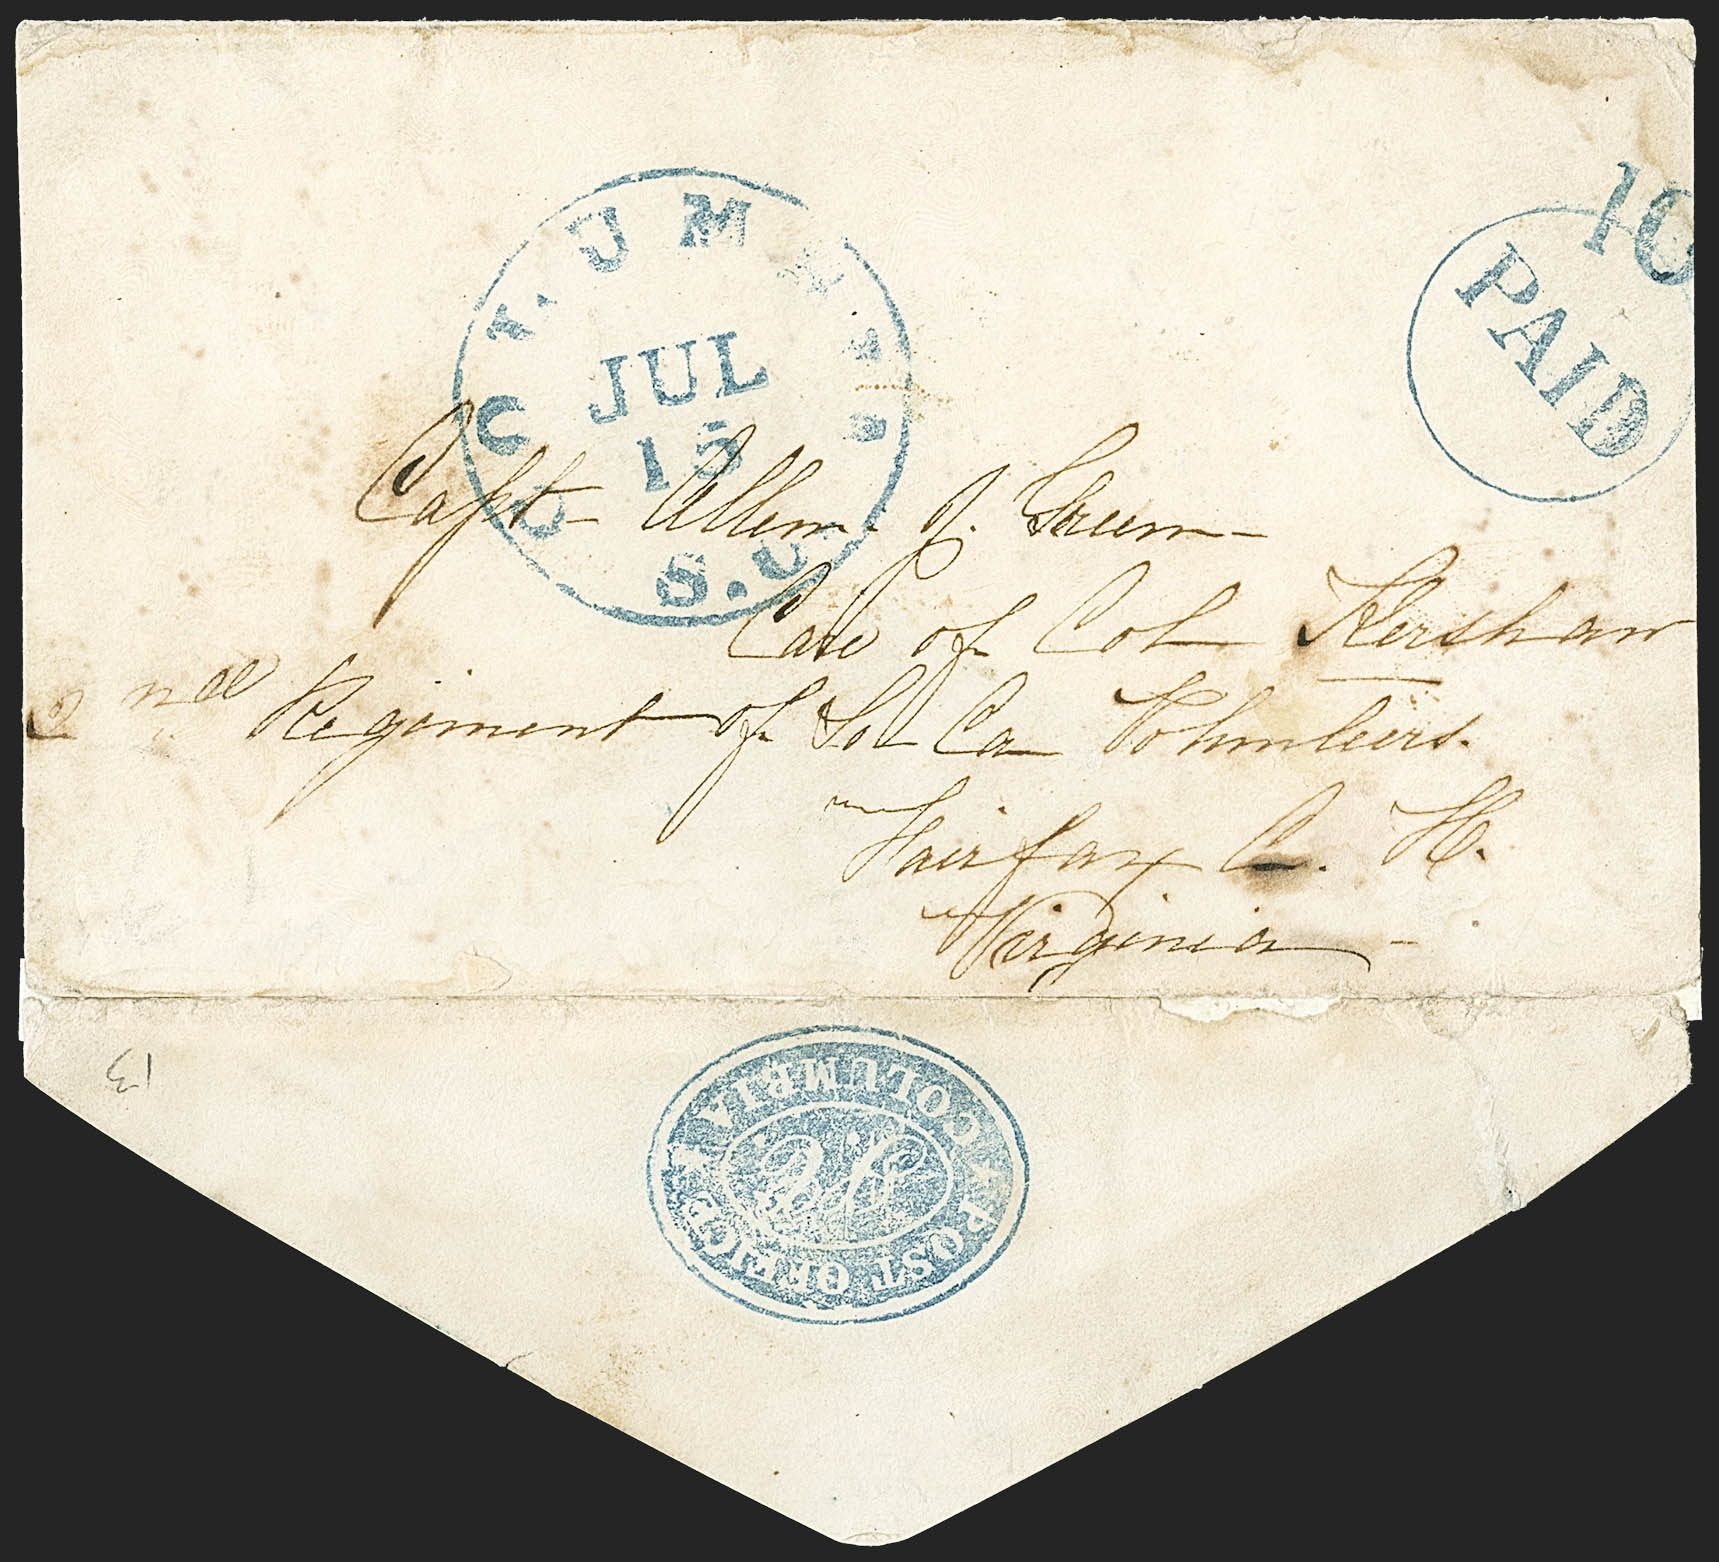 COLUMBIA
S.C.
JUL
15
10
PAID
Capt Allen J. Green
Care of Col Kershaw
2nd Regiment of So Ca Volunteers.
Fairfax C. H.
Virginia
13
COLUMBIA
POST OFFICE